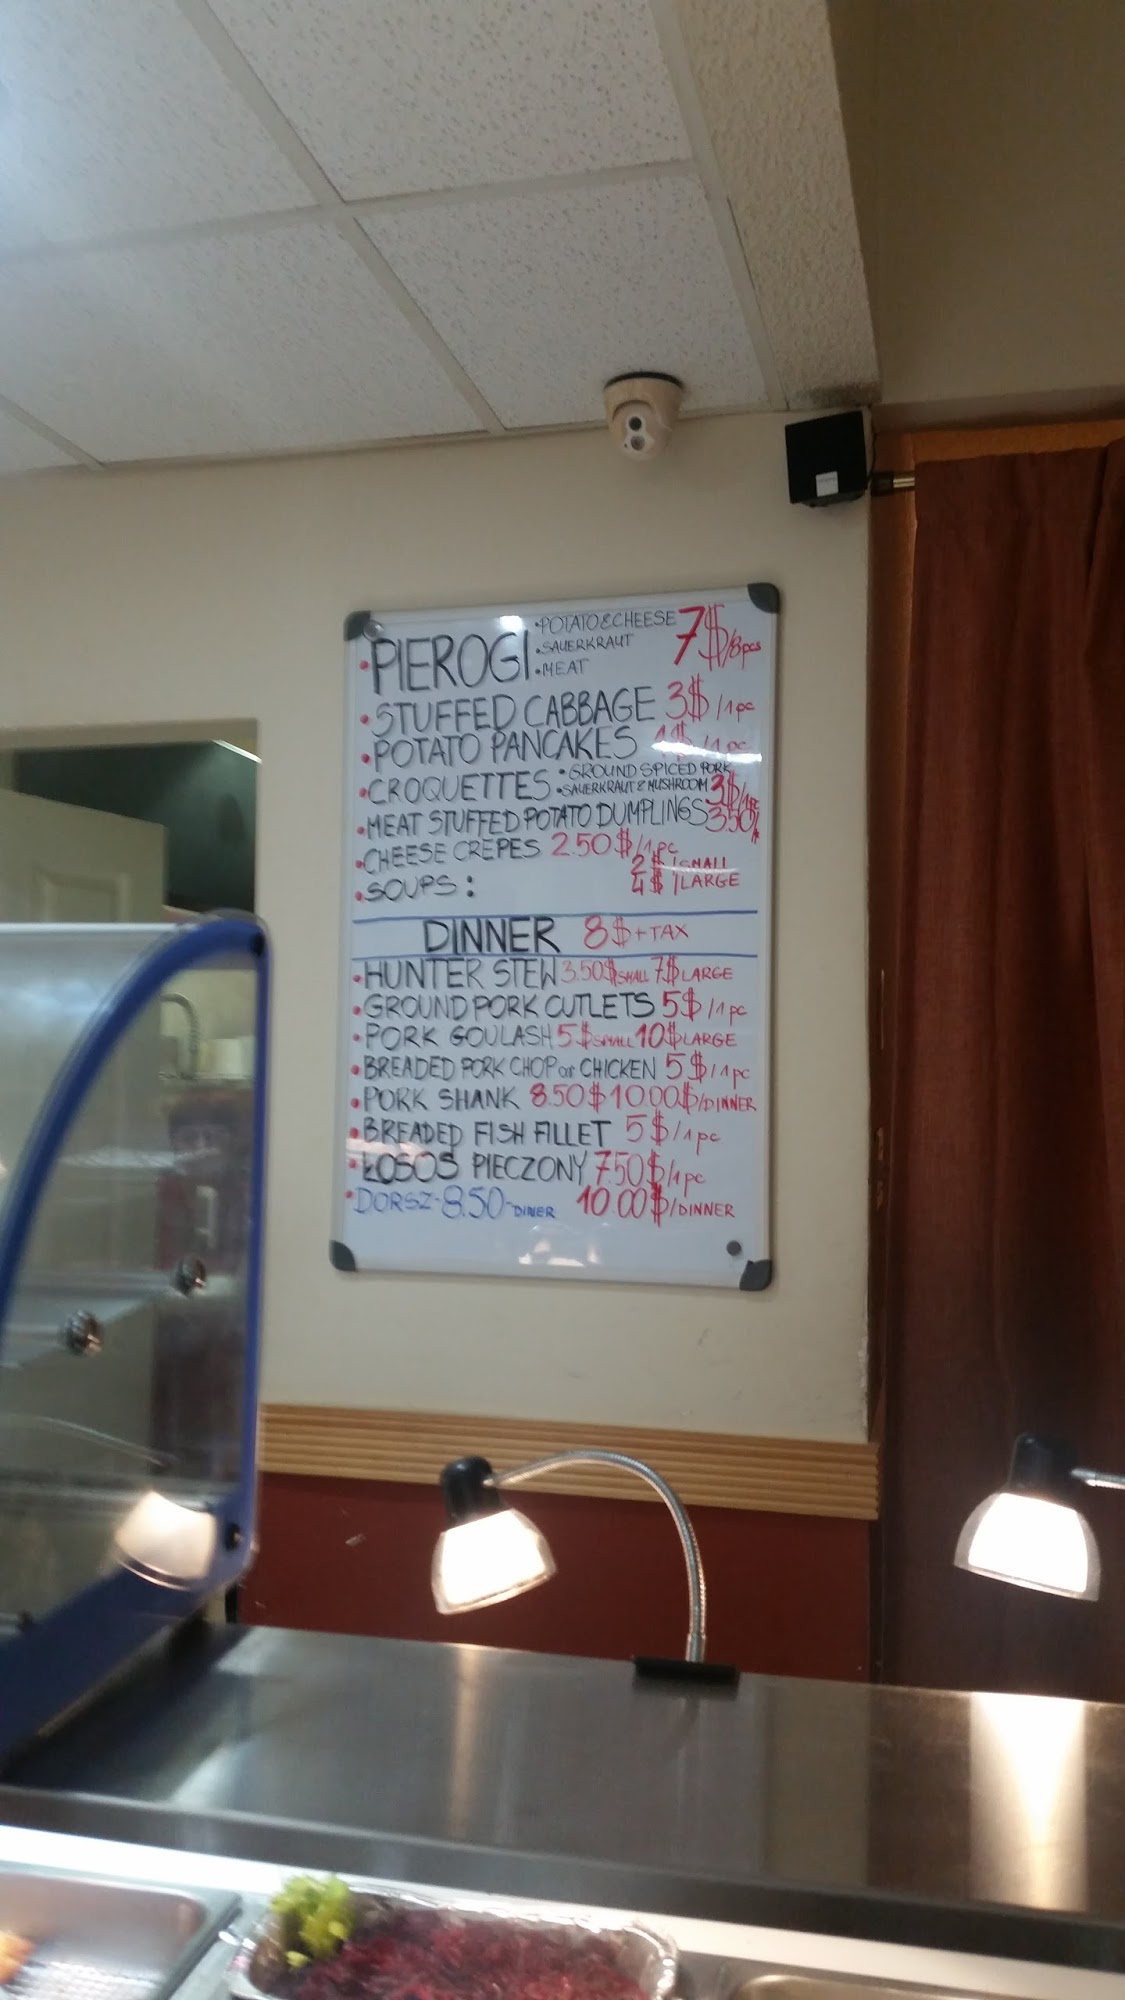 • PIEROGI • POTATO & CHEESE 7$/8pcs
• SAUERKRAUT
• MEAT
• STUFFED CABBAGE 3$/1pc
• POTATO PANCAKES /1pc
• CROQUETTES • GROUND SPICED PORK
• SAUERKRAUT & MUSHROOM 3$/1pc
• MEAT STUFFED POTATO DUMPLINGS 3.50/
• CHEESE CREPES 2.50$/1pc
2$/SMALL
• SOUPS: 4$/LARGE
DINNER 8$+TAX
• HUNTER STEW 3.50$SMALL 7$LARGE
• GROUND PORK CUTLETS 5$/1pc
• PORK GOULASH 5$SMALL 10$LARGE
• BREADED PORK CHOP or CHICKEN 5$/1pc
• PORK SHANK 8.50$ 10.00$/DINNER
• BREADED FISH FILLET 5$/1pc
• ŁOSOS PIECZONY 7.50$/1pc
• DORSZ-8.50-DINER 10.00$/DINNER